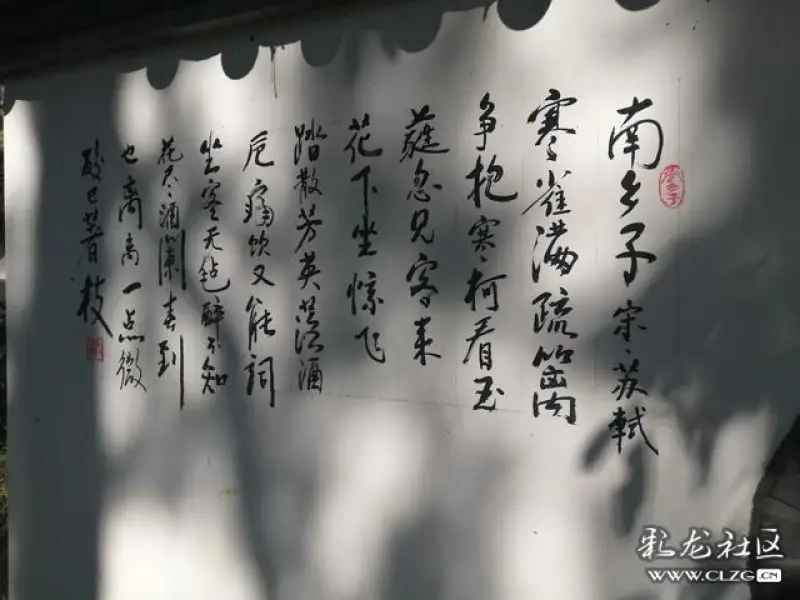 南乡子 宋 苏轼
寒雀满疏篱
争抱寒柯看玉
蕤忽见客来
花下坐惊飞
踏散芳英落酒
卮痛饮又能词
坐客无毡醉不知
花尽酒阑春到
也离离一点微
酸已着枝
彩龙社区
WWW.CLZG.CN